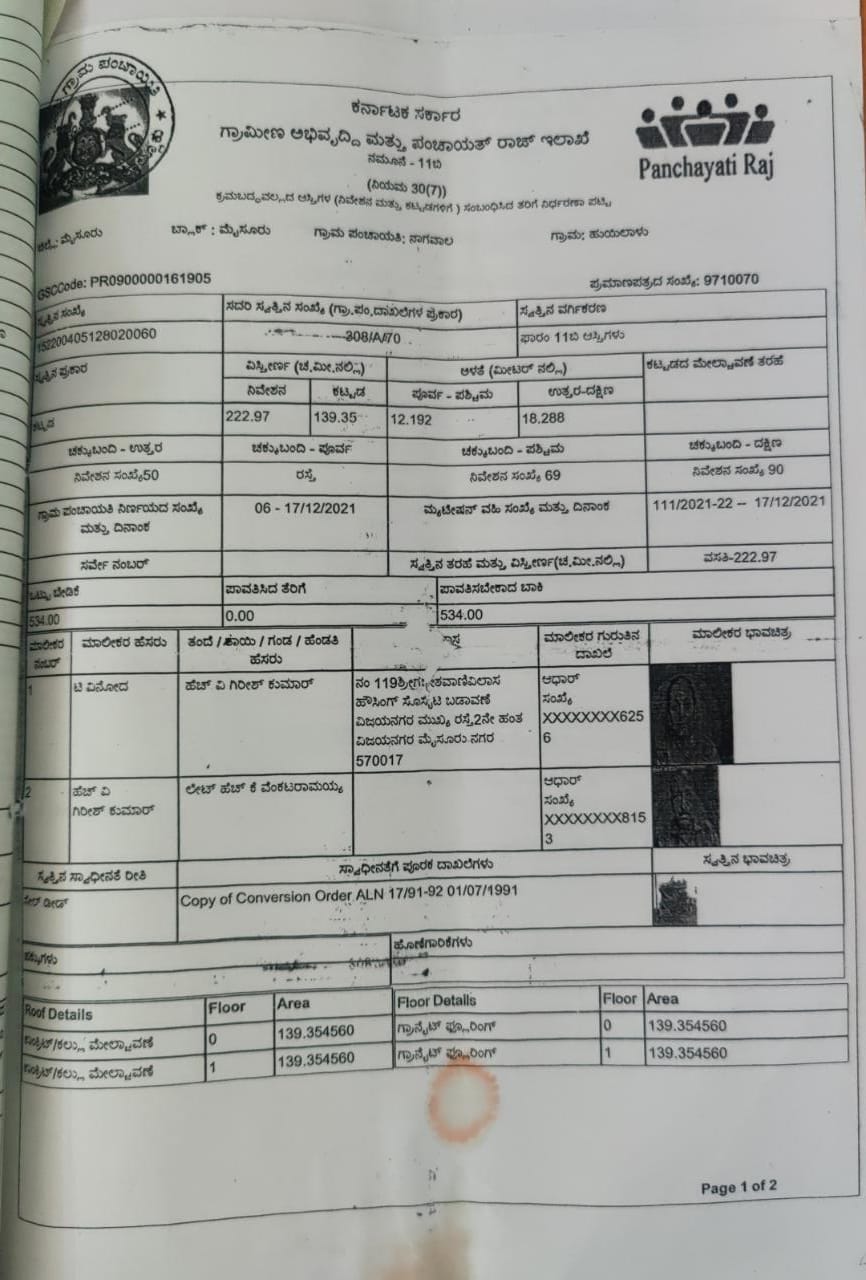 ಗ್ರಾಮ ಪಂಚಾಯಿತಿ
ಕರ್ನಾಟಕ ಸರ್ಕಾರ
ಗ್ರಾಮೀಣ ಅಭಿವೃದ್ಧಿ ಮತ್ತು ಪಂಚಾಯತ್ ರಾಜ್ ಇಲಾಖೆ
ನಮೂನೆ - 11ಬಿ
(ನಿಯಮ 30(7))
ಕ್ರಮಬದ್ಧವಲ್ಲದ ಆಸ್ತಿಗಳ (ನಿವೇಶನ ಮತ್ತು ಕಟ್ಟಡಗಳಿಗೆ ) ಸಂಬಂಧಿಸಿದ ತೆರಿಗೆ ನಿರ್ಧರಣಾ ಪಟ್ಟಿ
Panchayati Raj
ಜಿಲ್ಲೆ: ಮೈಸೂರು ಬ್ಲಾಕ್ : ಮೈಸೂರು ಗ್ರಾಮ ಪಂಚಾಯತಿ: ನಾಗವಾಲ ಗ್ರಾಮ: ಹುಯಿಲಾಳು
GSCCode: PR0900000161905 ಪ್ರಮಾಣಪತ್ರದ ಸಂಖ್ಯೆ: 9710070
ಸ್ವತ್ತಿನ ಸಂಖ್ಯೆ ಸದರಿ ಸ್ವತ್ತಿನ ಸಂಖ್ಯೆ (ಗ್ರಾ.ಪಂ.ದಾಖಲೆಗಳ ಪ್ರಕಾರ) ಸ್ವತ್ತಿನ ವರ್ಗೀಕರಣ
152200405128020060 308/A/70 ಫಾರಂ 11ಬಿ ಆಸ್ತಿಗಳು
ಸ್ವತ್ತಿನ ಪ್ರಕಾರ ವಿಸ್ತೀರ್ಣ (ಚ.ಮೀ.ನಲ್ಲಿ) ಅಳತೆ (ಮೀಟರ್ ನಲ್ಲಿ) ಕಟ್ಟಡದ ಮೇಲ್ಛಾವಣೆ ತರಹೆ
ನಿವೇಶನ ಕಟ್ಟಡ ಪೂರ್ವ - ಪಶ್ಚಿಮ ಉತ್ತರ-ದಕ್ಷಿಣ
ಕಟ್ಟಡ 222.97 139.35 12.192 18.288
ಚಕ್ಕುಬಂದಿ - ಉತ್ತರ ಚಕ್ಕುಬಂದಿ - ಪೂರ್ವ ಚಕ್ಕುಬಂದಿ - ಪಶ್ಚಿಮ ಚಕ್ಕುಬಂದಿ - ದಕ್ಷಿಣ
ನಿವೇಶನ ಸಂಖ್ಯೆ50 ರಸ್ತೆ ನಿವೇಶನ ಸಂಖ್ಯೆ 69 ನಿವೇಶನ ಸಂಖ್ಯೆ 90
ಗ್ರಾಮ ಪಂಚಾಯತಿ ನಿರ್ಣಯದ ಸಂಖ್ಯೆ ಮತ್ತು ದಿನಾಂಕ 06 - 17/12/2021 ಮ್ಯುಟೇಷನ್ ವಹಿ ಸಂಖ್ಯೆ ಮತ್ತು ದಿನಾಂಕ 111/2021-22 -- 17/12/2021
ಸರ್ವೇ ನಂಬರ್ ಸ್ವತ್ತಿನ ತರಹೆ ಮತ್ತು ವಿಸ್ತೀರ್ಣ(ಚ.ಮೀ.ನಲ್ಲಿ) ವಸತಿ-222.97
ಒಟ್ಟು ಬೇಡಿಕೆ ಪಾವತಿಸಿದ ತೆರಿಗೆ ಪಾವತಿಸಬೇಕಾದ ಬಾಕಿ
534.00 0.00 534.00
ಮಾಲೀಕರ ನಂಬರ್ ಮಾಲೀಕರ ಹೆಸರು ತಂದೆ / ತಾಯಿ / ಗಂಡ / ಹೆಂಡತಿ ಹೆಸರು ಮಾಲೀಕರ ಗುರುತಿನ ದಾಖಲೆ ಮಾಲೀಕರ ಭಾವಚಿತ್ರ
1 ಟಿ ವಿನೋದ ಹೆಚ್ ವಿ ಗಿರೀಶ್ ಕುಮಾರ್ ನಂ 119 ಆಧಾರ್
ಹೌಸಿಂಗ್ ಸೊಸೈಟಿ ಬಡಾವಣೆ ಸಂಖ್ಯೆ
ವಿಜಯನಗರ ಮುಖ್ಯ ರಸ್ತೆ,2ನೇ ಹಂತ XXXXXXXX625
ವಿಜಯನಗರ ಮೈಸೂರು ನಗರ 6
570017
2 ಹೆಚ್ ವಿ ಲೇಟ್ ಹೆಚ್ ಕೆ ವೆಂಕಟರಾಮಯ್ಯ ಆಧಾರ್
ಗಿರೀಶ್ ಕುಮಾರ್ ಸಂಖ್ಯೆ
XXXXXXXX815
3
ಸ್ವತ್ತಿನ ಸ್ವಾಧೀನತೆ ರೀತಿ ಸ್ವಾಧೀನತೆಗೆ ಪೂರಕ ದಾಖಲೆಗಳು ಸ್ವತ್ತಿನ ಭಾವಚಿತ್ರ
ಸೇಲ್ ಡೀಡ್ Copy of Conversion Order ALN 17/91-92 01/07/1991
ಹಕ್ಕುಗಳು ಹೊಣೆಗಾರಿಕೆಗಳು
Roof Details Floor Area Floor Details Floor Area
ಕಾಂಕ್ರೀಟ್/ಕಲ್ಲು ಮೇಲ್ಛಾವಣೆ 0 139.354560 ಗ್ರಾನೈಟ್ ಫ್ಲೂರಿಂಗ್ 0 139.354560
ಕಾಂಕ್ರೀಟ್/ಕಲ್ಲು ಮೇಲ್ಛಾವಣೆ 1 139.354560 ಗ್ರಾನೈಟ್ ಫ್ಲೂರಿಂಗ್ 1 139.354560
Page 1 of 2